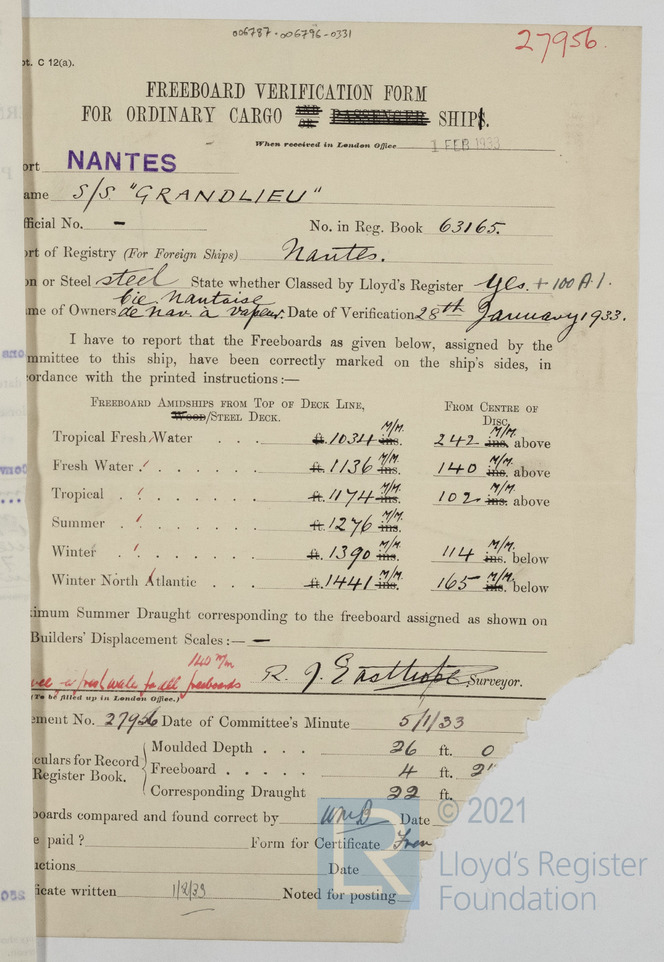 006787-006796-0331
27956.
pt. C 12(a).
FREEBOARD VERIFICATION FORM
FOR ORDINARY CARGO AND OR PASSENGER SHIPS.
When received in London Office 1 FEB 1933
ort NANTES
ame S/S "GRANDLIEU"
fficial No. – No. in Reg. Book 63165.
rt of Registry (For Foreign Ships) Nantes.
on or Steel steel State whether Classed by Lloyd's Register Yes. + 100 A 1.
me of Owners Cie Nantaise de nav. à vapeur. Date of Verification 28th January 1933.
I have to report that the Freeboards as given below, assigned by the
mmittee to this ship, have been correctly marked on the ship's sides, in
ordance with the printed instructions:—
FREEBOARD AMIDSHIPS FROM TOP OF DECK LINE, WOOD/STEEL DECK.
FROM CENTRE OF DISC.
Tropical Fresh Water . . . ft. 1034 M/M. ins. 242 M/M. ins. above
Fresh Water . . . . . . ft. 1136 M/M. ins. 140 M/M. ins. above
Tropical . . . . . . ft. 1174 M/M. ins. 102 M/M. ins. above
Summer . . . . . . ft. 1276 M/M. ins.
Winter . . . . . . ft. 1390 M/M. ins. 114 M/M. ins. below
Winter North Atlantic . . . ft. 1441 M/M. ins. 165 M/M. ins. below
ximum Summer Draught corresponding to the freeboard assigned as shown on
Builders' Displacement Scales:— –
140 m/m
fresh water for all freeboards
R. J. Easthope Surveyor.
(To be filled up in London Office.)
ement No. 27956 Date of Committee's Minute 5/1/33
culars for Record Register Book.
Moulded Depth . . . 26 ft. 0
Freeboard . . . . . 4 ft. 2
Corresponding Draught 22 ft.
boards compared and found correct by WMB Date
e paid ? Form for Certificate Fren
uctions Date
ficate written 1/2/33 Noted for posting
© 2021
LR
Lloyd's Register
Foundation